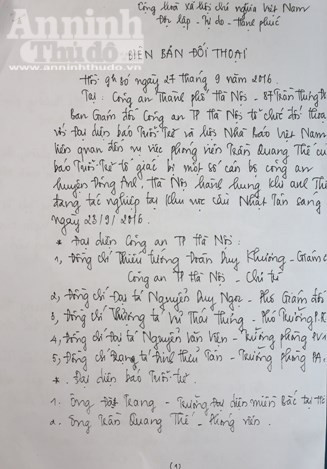 Cộng hoà xã hội chủ nghĩa Việt Nam
Độc lập - Tự do - Hạnh phúc
An ninh
Thủ đô
www.anninhthudo.vn
BIÊN BẢN ĐỐI THOẠI
Hồi 9h 50 ngày 27 tháng 9 năm 2016.
Tại: Công an Thành phố Hà Nội - 87 Trần Hưng Đạ
Ban Giám đốc Công an TP Hà Nội tổ chức đối thoạ
với Đại diện báo Tuổi Trẻ và Hội Nhà Báo Việt Nam
liên quan đến vụ việc phóng viên Trần Quang Thế củ
báo Tuổi Trẻ tố giác bị một số cán bộ công an
huyện Đông Anh, Hà Nội hành hung khi anh Thế
đang tác nghiệp tại khu vực cầu Nhật Tân sáng
ngày 23/9/2016.
* Đại diện Công an TP Hà Nội:
1, Đồng chí Thiếu tướng Đoàn Duy Khương - Giám đ
Công an TP Hà Nội - Chủ trì
2, Đồng chí Đại tá Nguyễn Duy Ngọc - Phó Giám đố
3, Đồng chí Thượng tá Vũ Thái Hưng - Phó Trưởng
4, Đồng chí Đại tá Nguyễn Văn Viện - Trưởng phòng PV1
5, Đồng chí tá Đinh Hữu Tân - Trưởng phòng PA
*. Đại diện báo Tuổi trẻ.
1. Ông Trang - Trưởng đại diện miền Bắc tại Hà
2. Ông Trần Quang Thế - Phóng viên.
(1)